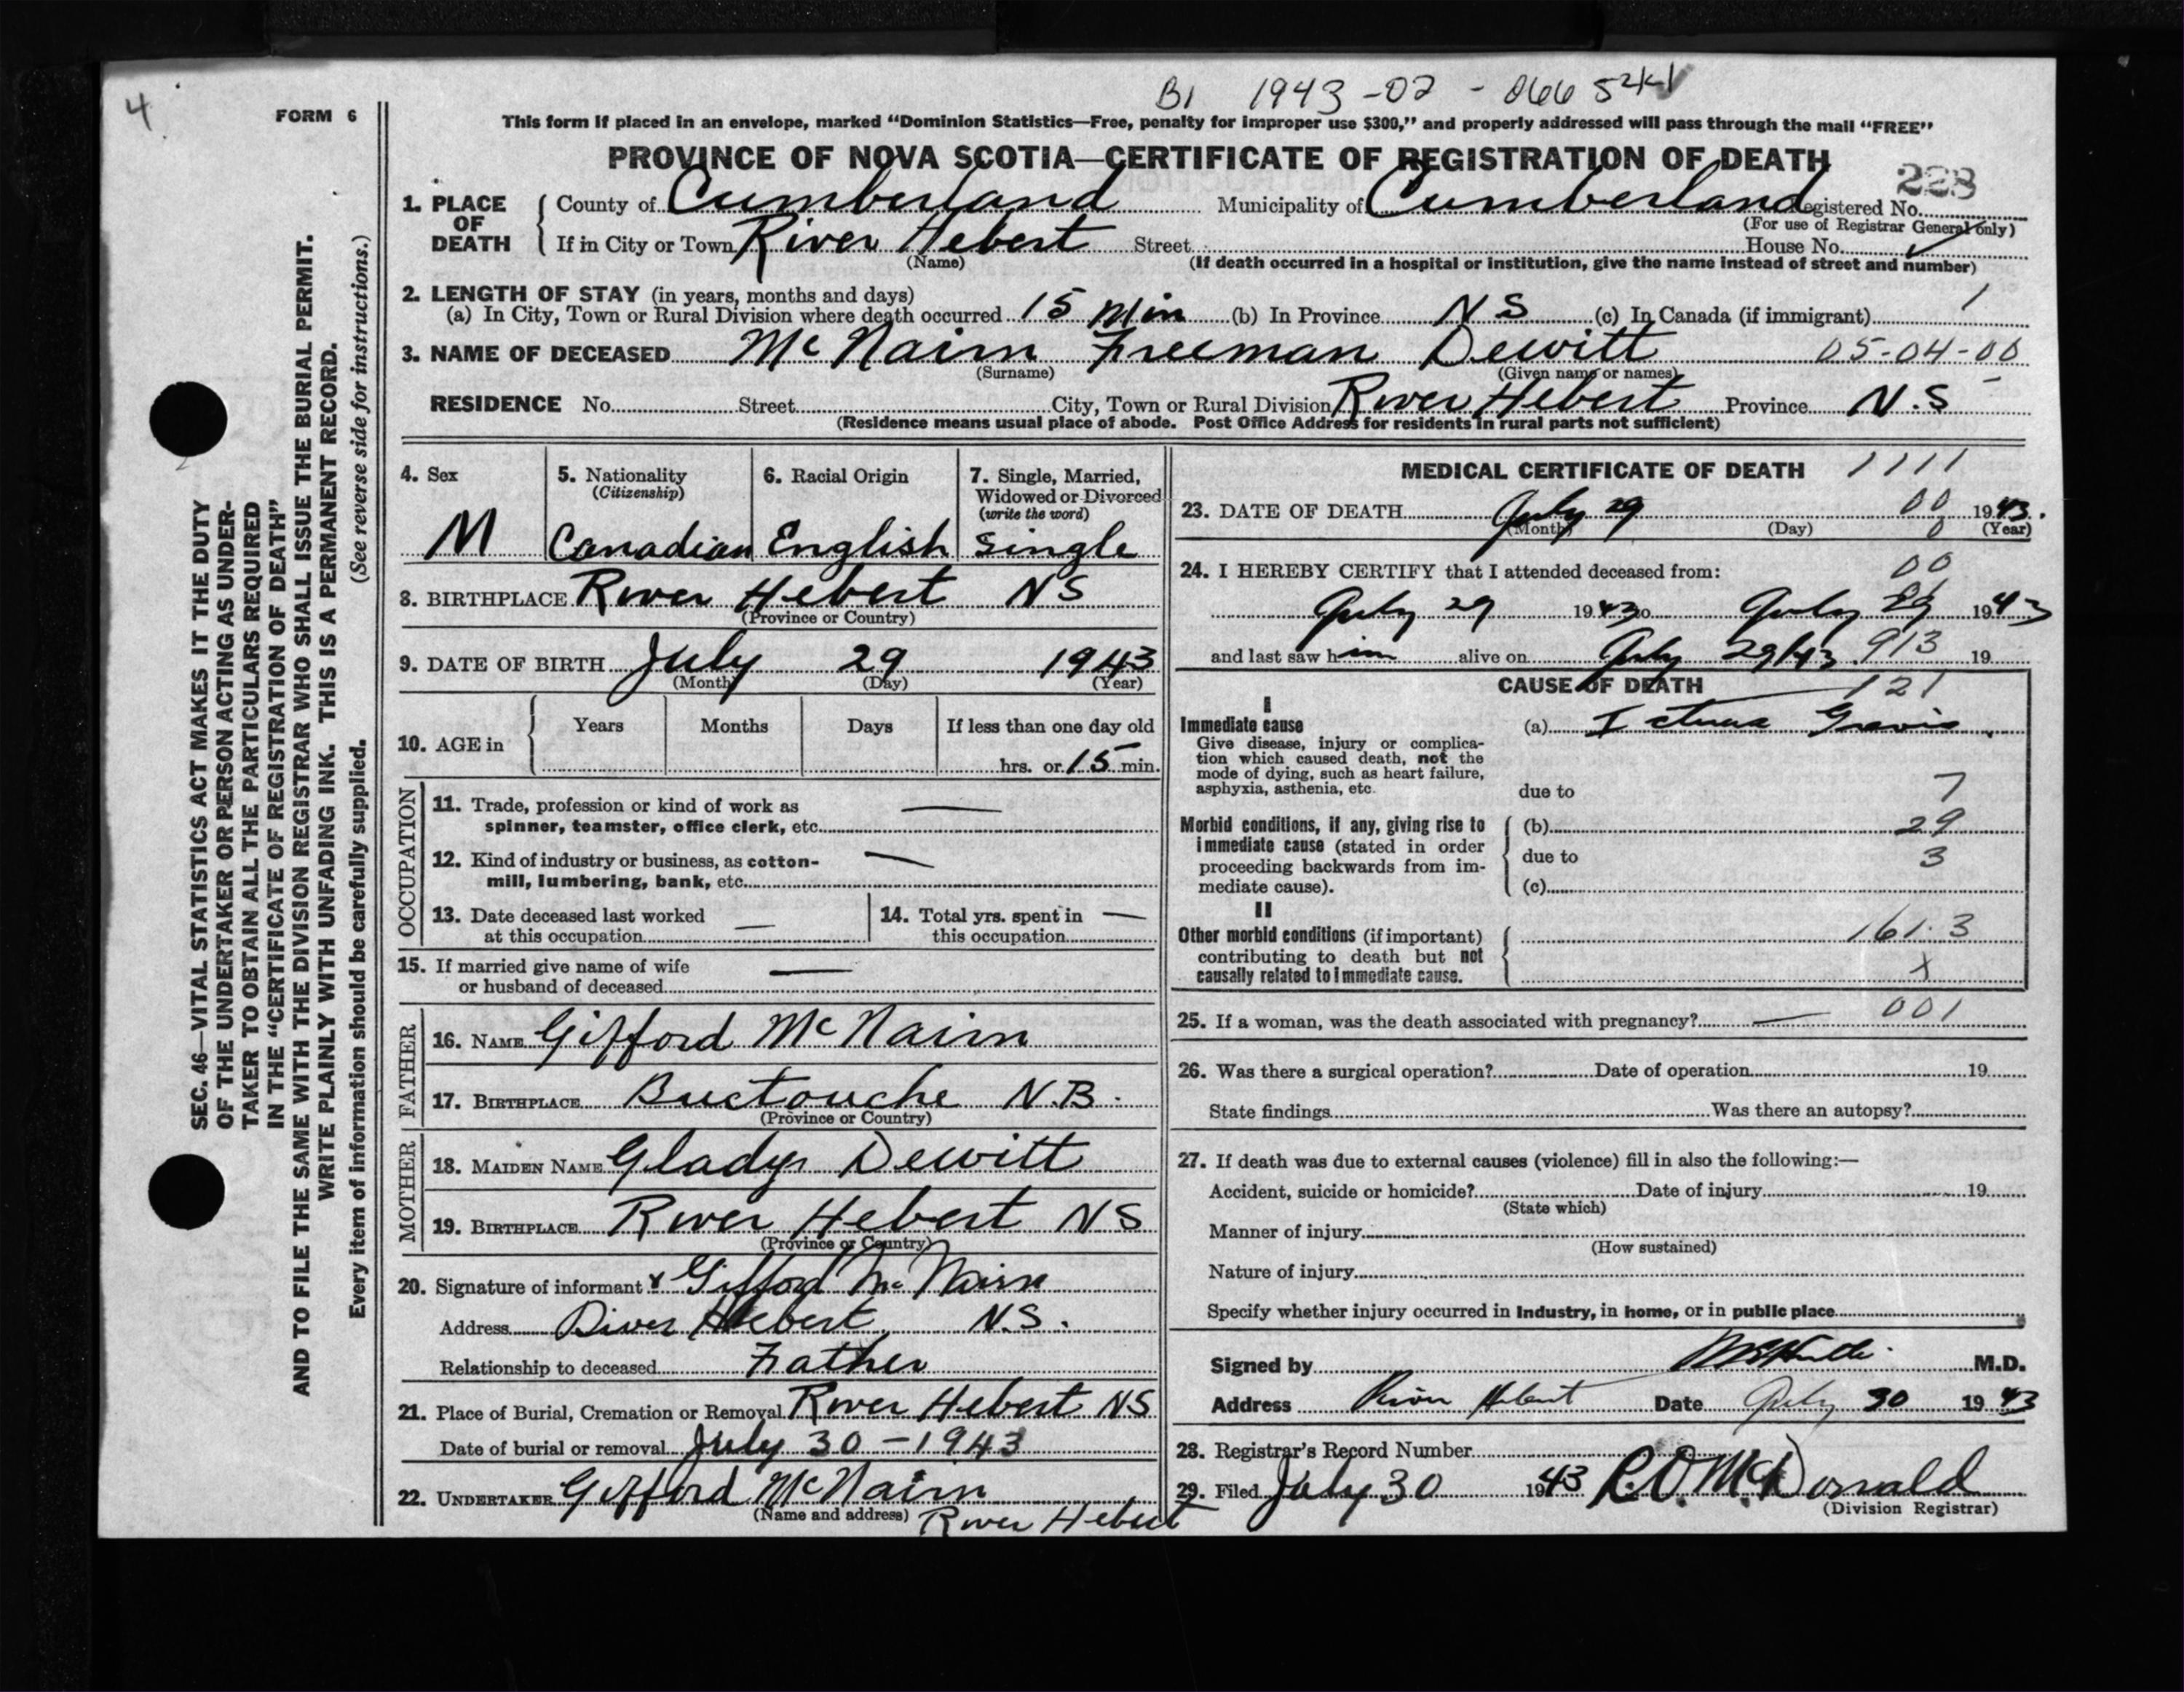 4
FORM 6
B1 1943-02-066521
This form if placed in an envelope, marked "Dominion Statistics—Free, penalty for improper use $300," and properly addressed will pass through the mail "FREE"
PROVINCE OF NOVA SCOTIA—CERTIFICATE OF REGISTRATION OF DEATH
228
1. PLACE OF DEATH County of Cumberland Municipality of Cumberland Registered No.
(For use of Registrar General only)
If in City or Town River Hebert Street House No.
(Name) (If death occurred in a hospital or institution, give the name instead of street and number)
2. LENGTH OF STAY (in years, months and days) 1
(a) In City, Town or Rural Division where death occurred 15 Min (b) In Province N S (c) In Canada (if immigrant)
3. NAME OF DECEASED McNairn Freeman Dewitt 05-04-00
(Surname) (Given name or names)
RESIDENCE No. Street City, Town or Rural Division River Hebert Province N.S
(Residence means usual place of abode. Post Office Address for residents in rural parts not sufficient)
4. Sex M
5. Nationality (Citizenship) Canadian
6. Racial Origin English
7. Single, Married, Widowed or Divorced (write the word) single
8. BIRTHPLACE River Hebert NS
(Province or Country)
9. DATE OF BIRTH July 29 1943
(Month) (Day) (Year)
10. AGE in Years Months Days If less than one day old
hrs. or 15 min.
OCCUPATION
11. Trade, profession or kind of work as —
spinner, teamster, office clerk, etc.
12. Kind of industry or business, as cotton- —
mill, lumbering, bank, etc.
13. Date deceased last worked at this occupation —
14. Total yrs. spent in this occupation —
15. If married give name of wife —
or husband of deceased
FATHER
16. NAME Gifford McNairn
17. BIRTHPLACE Buctouche N.B.
(Province or Country)
MOTHER
18. MAIDEN NAME Gladys Dewitt
19. BIRTHPLACE River Hebert NS
(Province or Country)
20. Signature of informant x Gifford McNairn
Address River Hebert N.S.
Relationship to deceased Father
21. Place of Burial, Cremation or Removal River Hebert NS
Date of burial or removal July 30 - 1943
22. UNDERTAKER Gifford McNairn
(Name and address) River Hebert
MEDICAL CERTIFICATE OF DEATH 1111
23. DATE OF DEATH July 29 00 1943.
(Month) (Day) 0 (Year)
24. I HEREBY CERTIFY that I attended deceased from: 00
July 29 1943 to July 29 1943
and last saw him alive on July 29/43 913 19
CAUSE OF DEATH 121
I
Immediate cause (a) Icterus Gravis
Give disease, injury or complica-
tion which caused death, not the
mode of dying, such as heart failure,
asphyxia, asthenia, etc. due to 7
Morbid conditions, if any, giving rise to (b) 29
immediate cause (stated in order due to 3
proceeding backwards from im-
mediate cause). (c)
II
Other morbid conditions (if important) 161.3
contributing to death but not
causally related to immediate cause. X
25. If a woman, was the death associated with pregnancy? — 001
26. Was there a surgical operation? Date of operation 19
State findings Was there an autopsy?
27. If death was due to external causes (violence) fill in also the following:—
Accident, suicide or homicide? Date of injury 19
(State which)
Manner of injury
(How sustained)
Nature of injury
Specify whether injury occurred in Industry, in home, or in public place
Signed by M.D.
Address River Hebert Date July 30 1943
28. Registrar's Record Number
29. Filed July 30 1943 R.O. McDonald
(Division Registrar)
SEC. 46—VITAL STATISTICS ACT MAKES IT THE DUTY
OF THE UNDERTAKER OR PERSON ACTING AS UNDER-
TAKER TO OBTAIN ALL THE PARTICULARS REQUIRED
IN THE "CERTIFICATE OF REGISTRATION OF DEATH"
AND TO FILE THE SAME WITH THE DIVISION REGISTRAR WHO SHALL ISSUE THE BURIAL PERMIT.
WRITE PLAINLY WITH UNFADING INK. THIS IS A PERMANENT RECORD.
Every item of information should be carefully supplied. (See reverse side for instructions.)